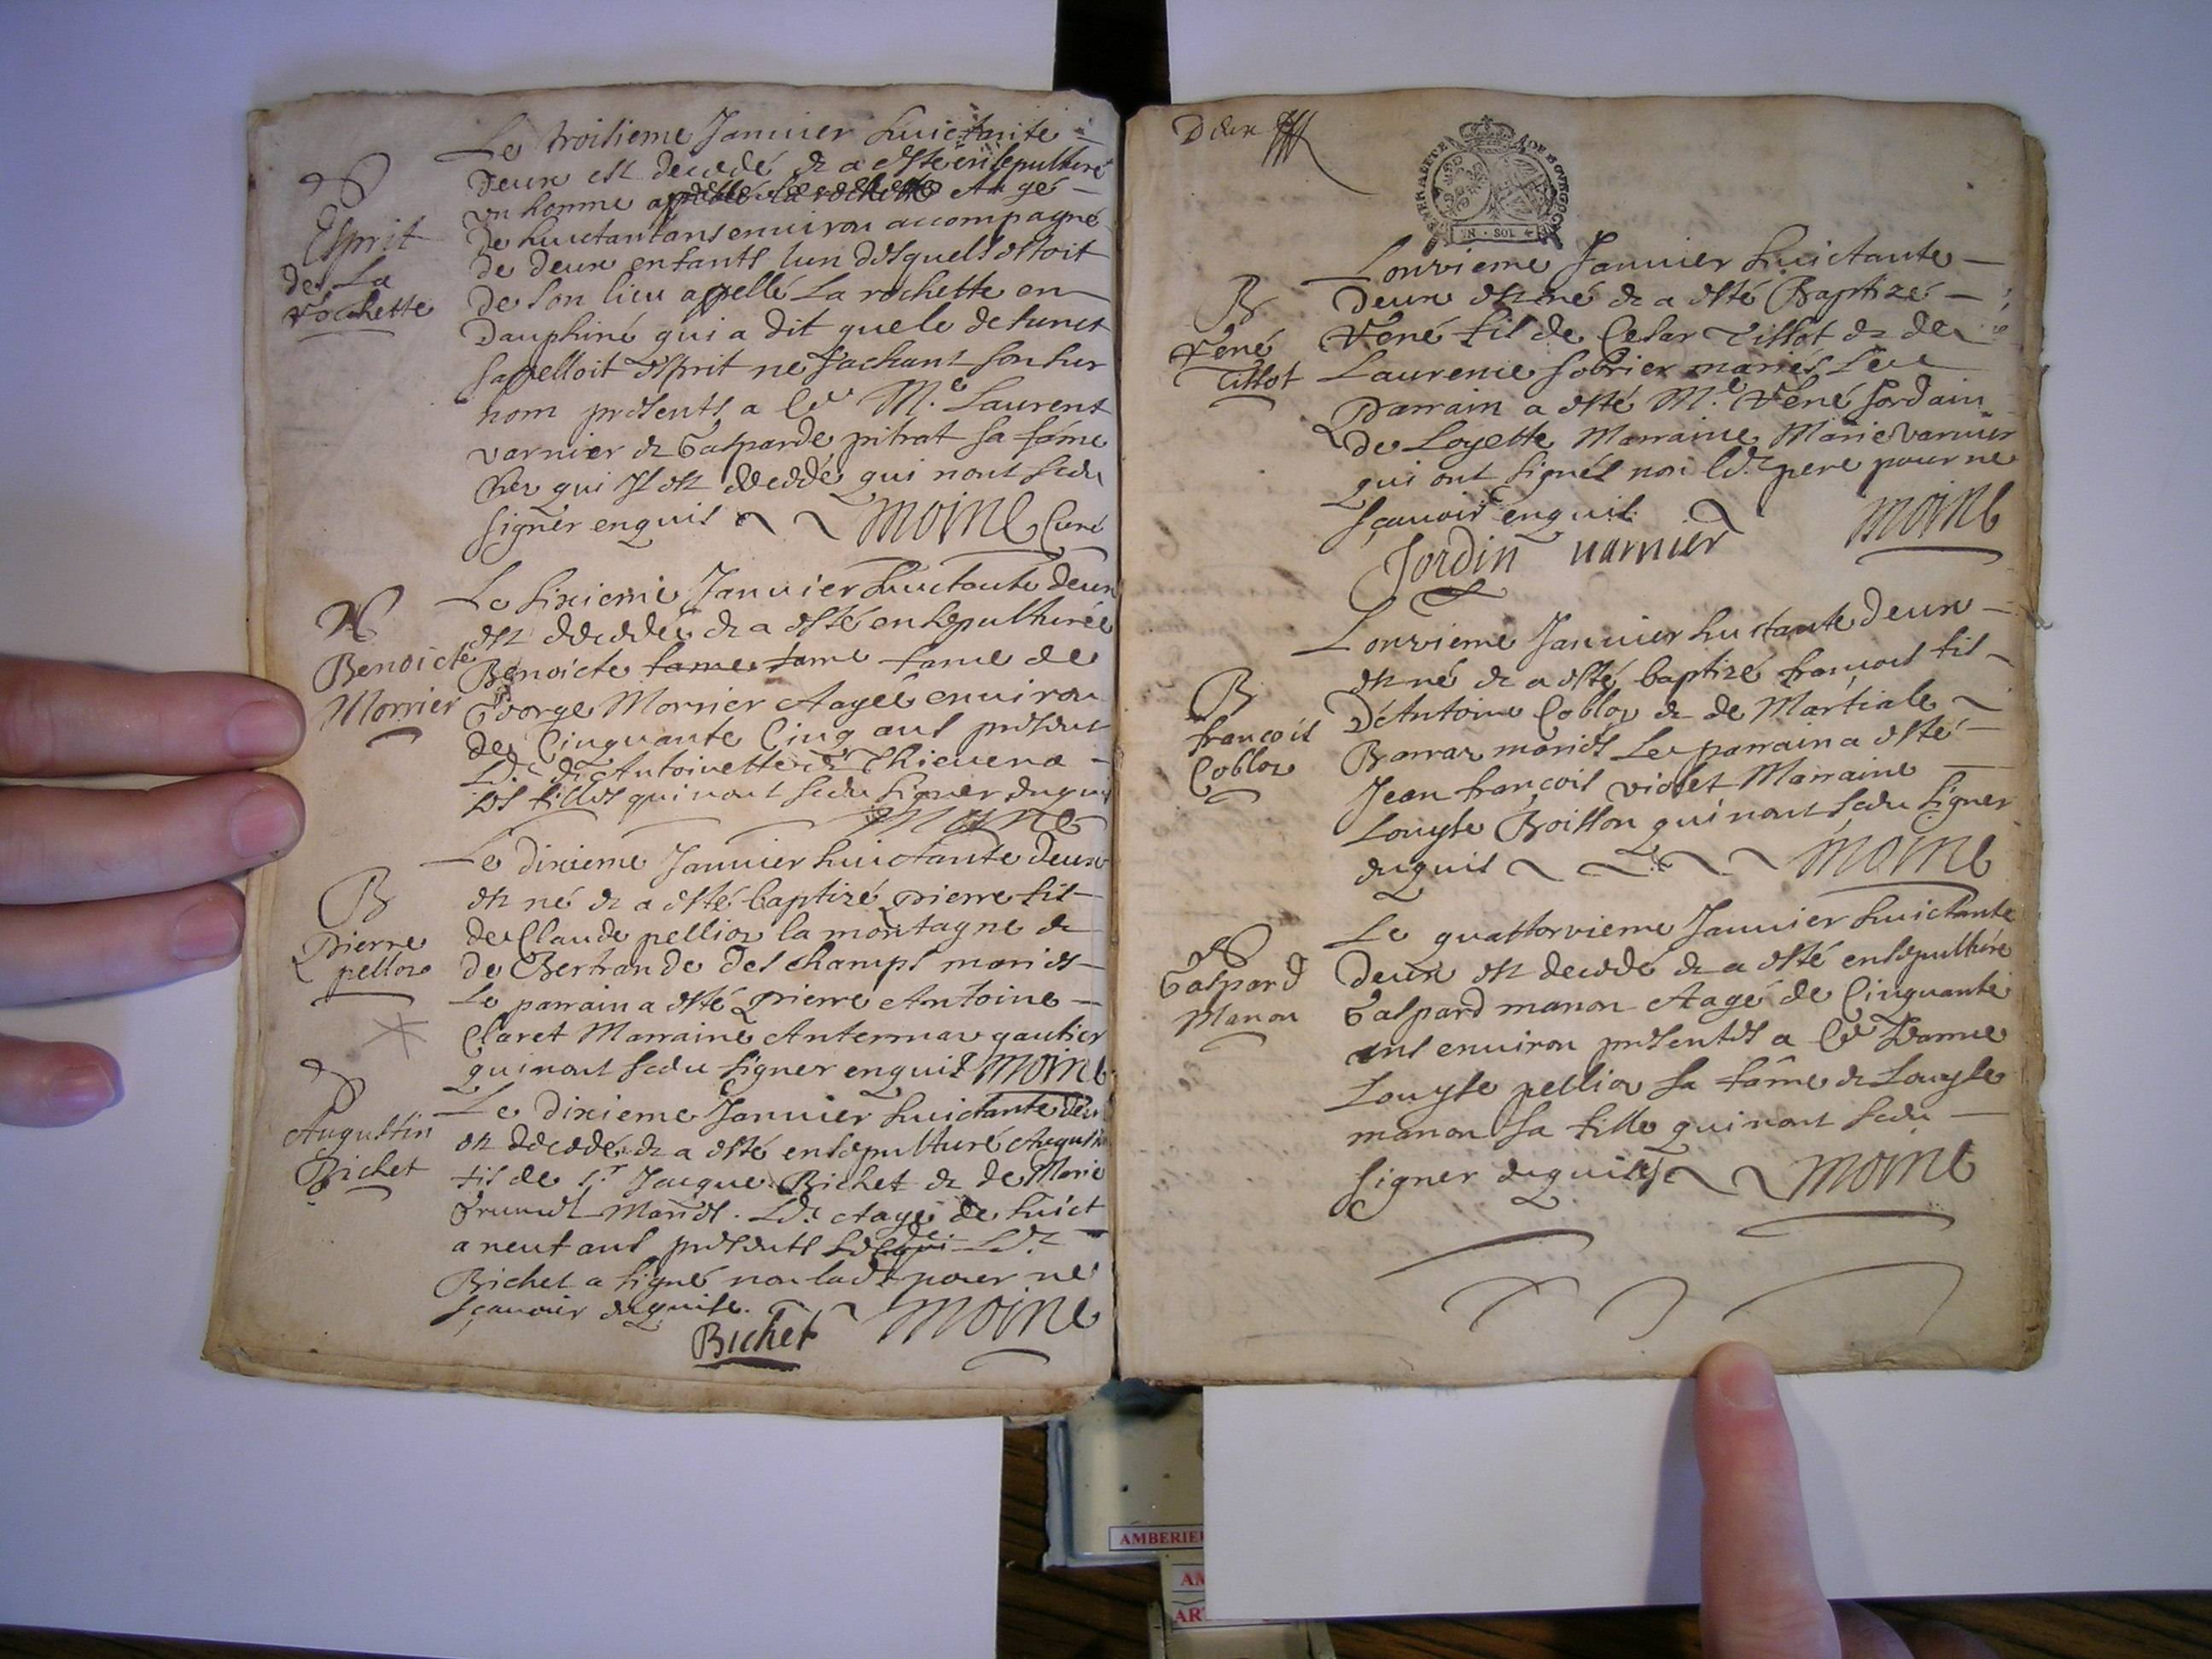 Le troisieme Januier huictante
Deux est decedé & a esté ensepulturé
vn homme Aagé
Esprit
de La
rochette
de huictantans enuiron accompagné
de deux enfants lun desquels estoit
de son lieu appellé La rochette en
Dauphiné qui a dit que le defunct
sapelloit esprit ne sachant son sur
nom presents a ce Me. Laurent
varnier & Gasparde pitrat sa fame
chez qui Il est decedé qui nont sceu
signer enquis moine Curé
Le sixieme Januier huictante deux
est decedée & a esté ensepulturée
Benoicte
Morrier
Benoicte fame fame fame de
George Morrier Aagée enuiron
de Cinquante Cinq ans present
Ld. & Antoinette & Thieuena
ses filles qui nont sceu signer enquis
moine
Le dixieme Januier huictante deux
B
est né & a esté baptizé pierre fils
Pierre
pellox
de Claude pelliox la montagne &
de Bertrande deschamps mariés
Le parrain a esté pierre Antoine
Claret Marraine gautier
qui nont sceu signer enquis moine
Augustin
Bichet
Le dixieme Januier huictante deux
est decedé & a esté ensepulturé Augustin
fils de Sr. Jacque Bichet & de Marie
Mariés. Ld. Aagé de huict
a neuf ans presents Ld.
Bichet a signé non lad. pour ne
sçauoir enquise. moine
Bichet
Deux
GENERALITE DE BOVRGOGNE
IN · SOL
Lonzieme Januier huictante
B
René
Tissot
Deux est né & a esté Baptizé
René fils de Cesar Tissot & de
Laurence sobrier mariés Le
parrain a esté Me. René Jordain
de Loyette Marraine Marie varnier
qui ont signés non led. pere pour ne
sçauoir enquis moine
Jordin varnier
Lonzieme Januier huictante deux
B
françois
Coblox
est né & a esté baptizé françois fils
d'Antoine Coblox & de Martiale
Barraz mariés Le parrain a esté
Jean françois violet Marraine
Louyse Boisson qui nont sceu signer
enquis moine
Le quattorzieme Januier huictante
Gaspard
Manon
Deux est decedé & a esté ensepulturé
Gaspard manon Aagé de Cinquante
ans enuiron presentes a ce
Louyse pelliox sa fame & Louyse
manon sa fille qui nont sceu
signer enquises moine
AMBERIE
AM
AR